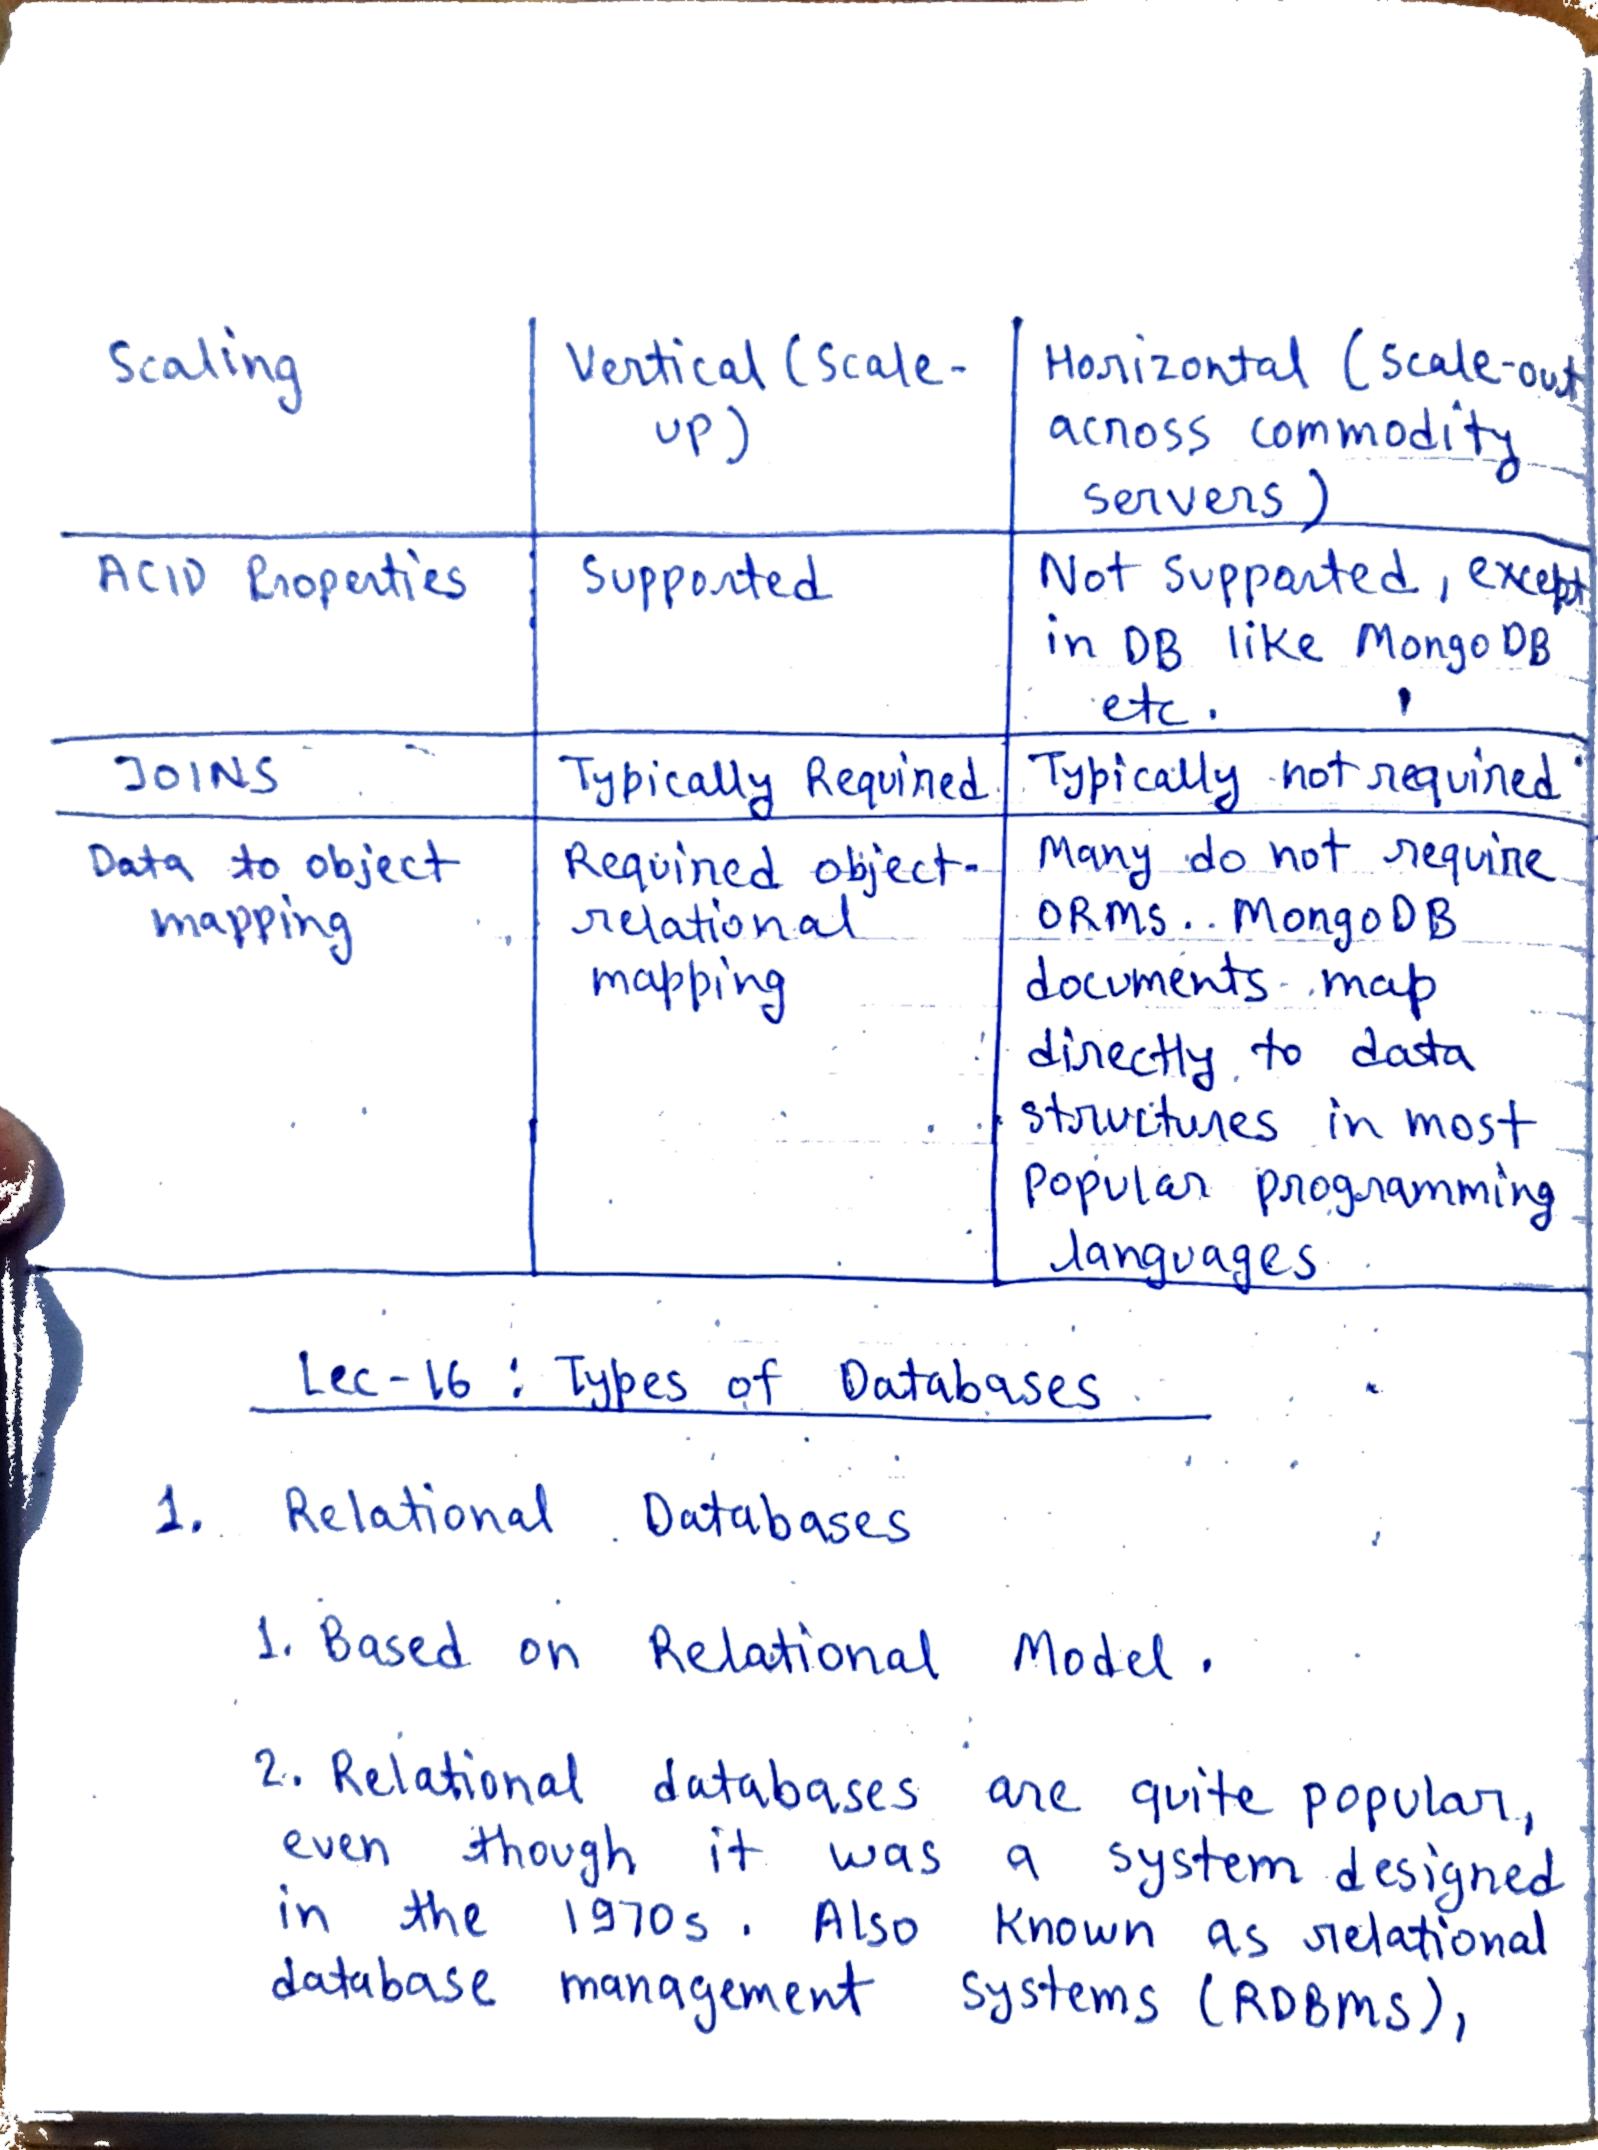 Scaling
Vertical (Scale-
up)
Horizontal (Scale-out
across commodity
servers)
ACID Properties
Supported
Not Supported, except
in DB like MongoDB
etc.
JOINS
Typically Required
Typically not required
Data to object
mapping
Required object-
relational
mapping
Many do not require
ORMs.. MongoDB
documents map
directly to data
structures in most
popular programming
languages
Lec-16 : Types of Databases
1. Relational Databases
1. Based on Relational Model.
2. Relational databases are quite popular,
even though it was a system designed
in the 1970s. Also known as relational
database management systems (RDBMS),